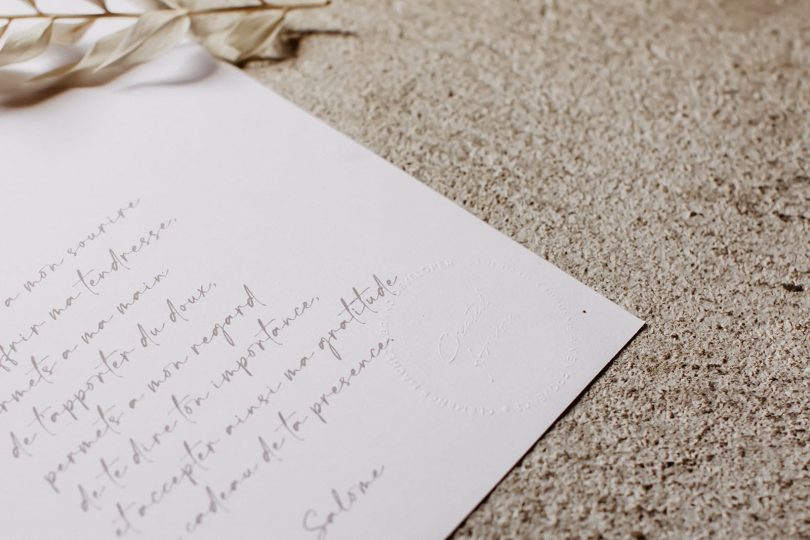 a mon sourire
ffrir ma tendresse,
ermets a ma main
de t'apporter du doux,
permets a mon regard
de te dire ton importance,
et accepter ainsi ma gratitude
cadeau de ta presence.
Salome
Created
for you